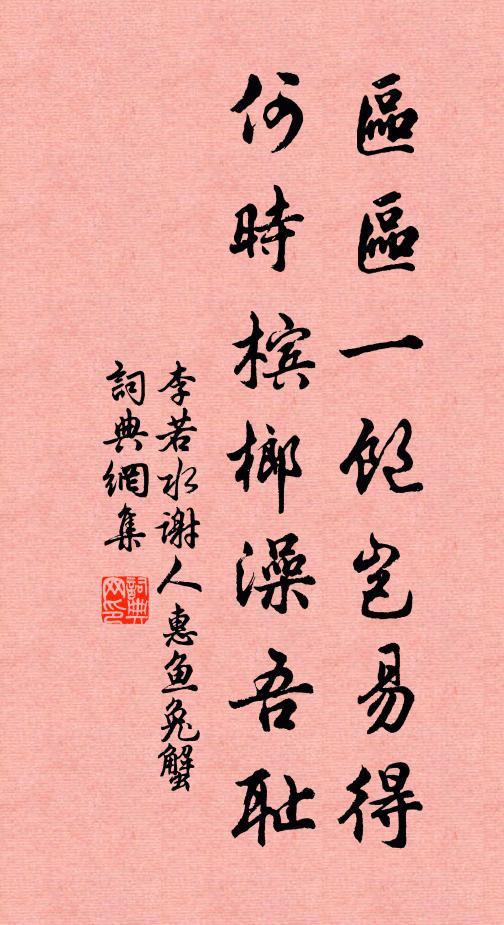 區區一飽豈易得
何時檳榔澡吾耻
李若水謝人惠魚兔蟹
詞典網集
詞典网印